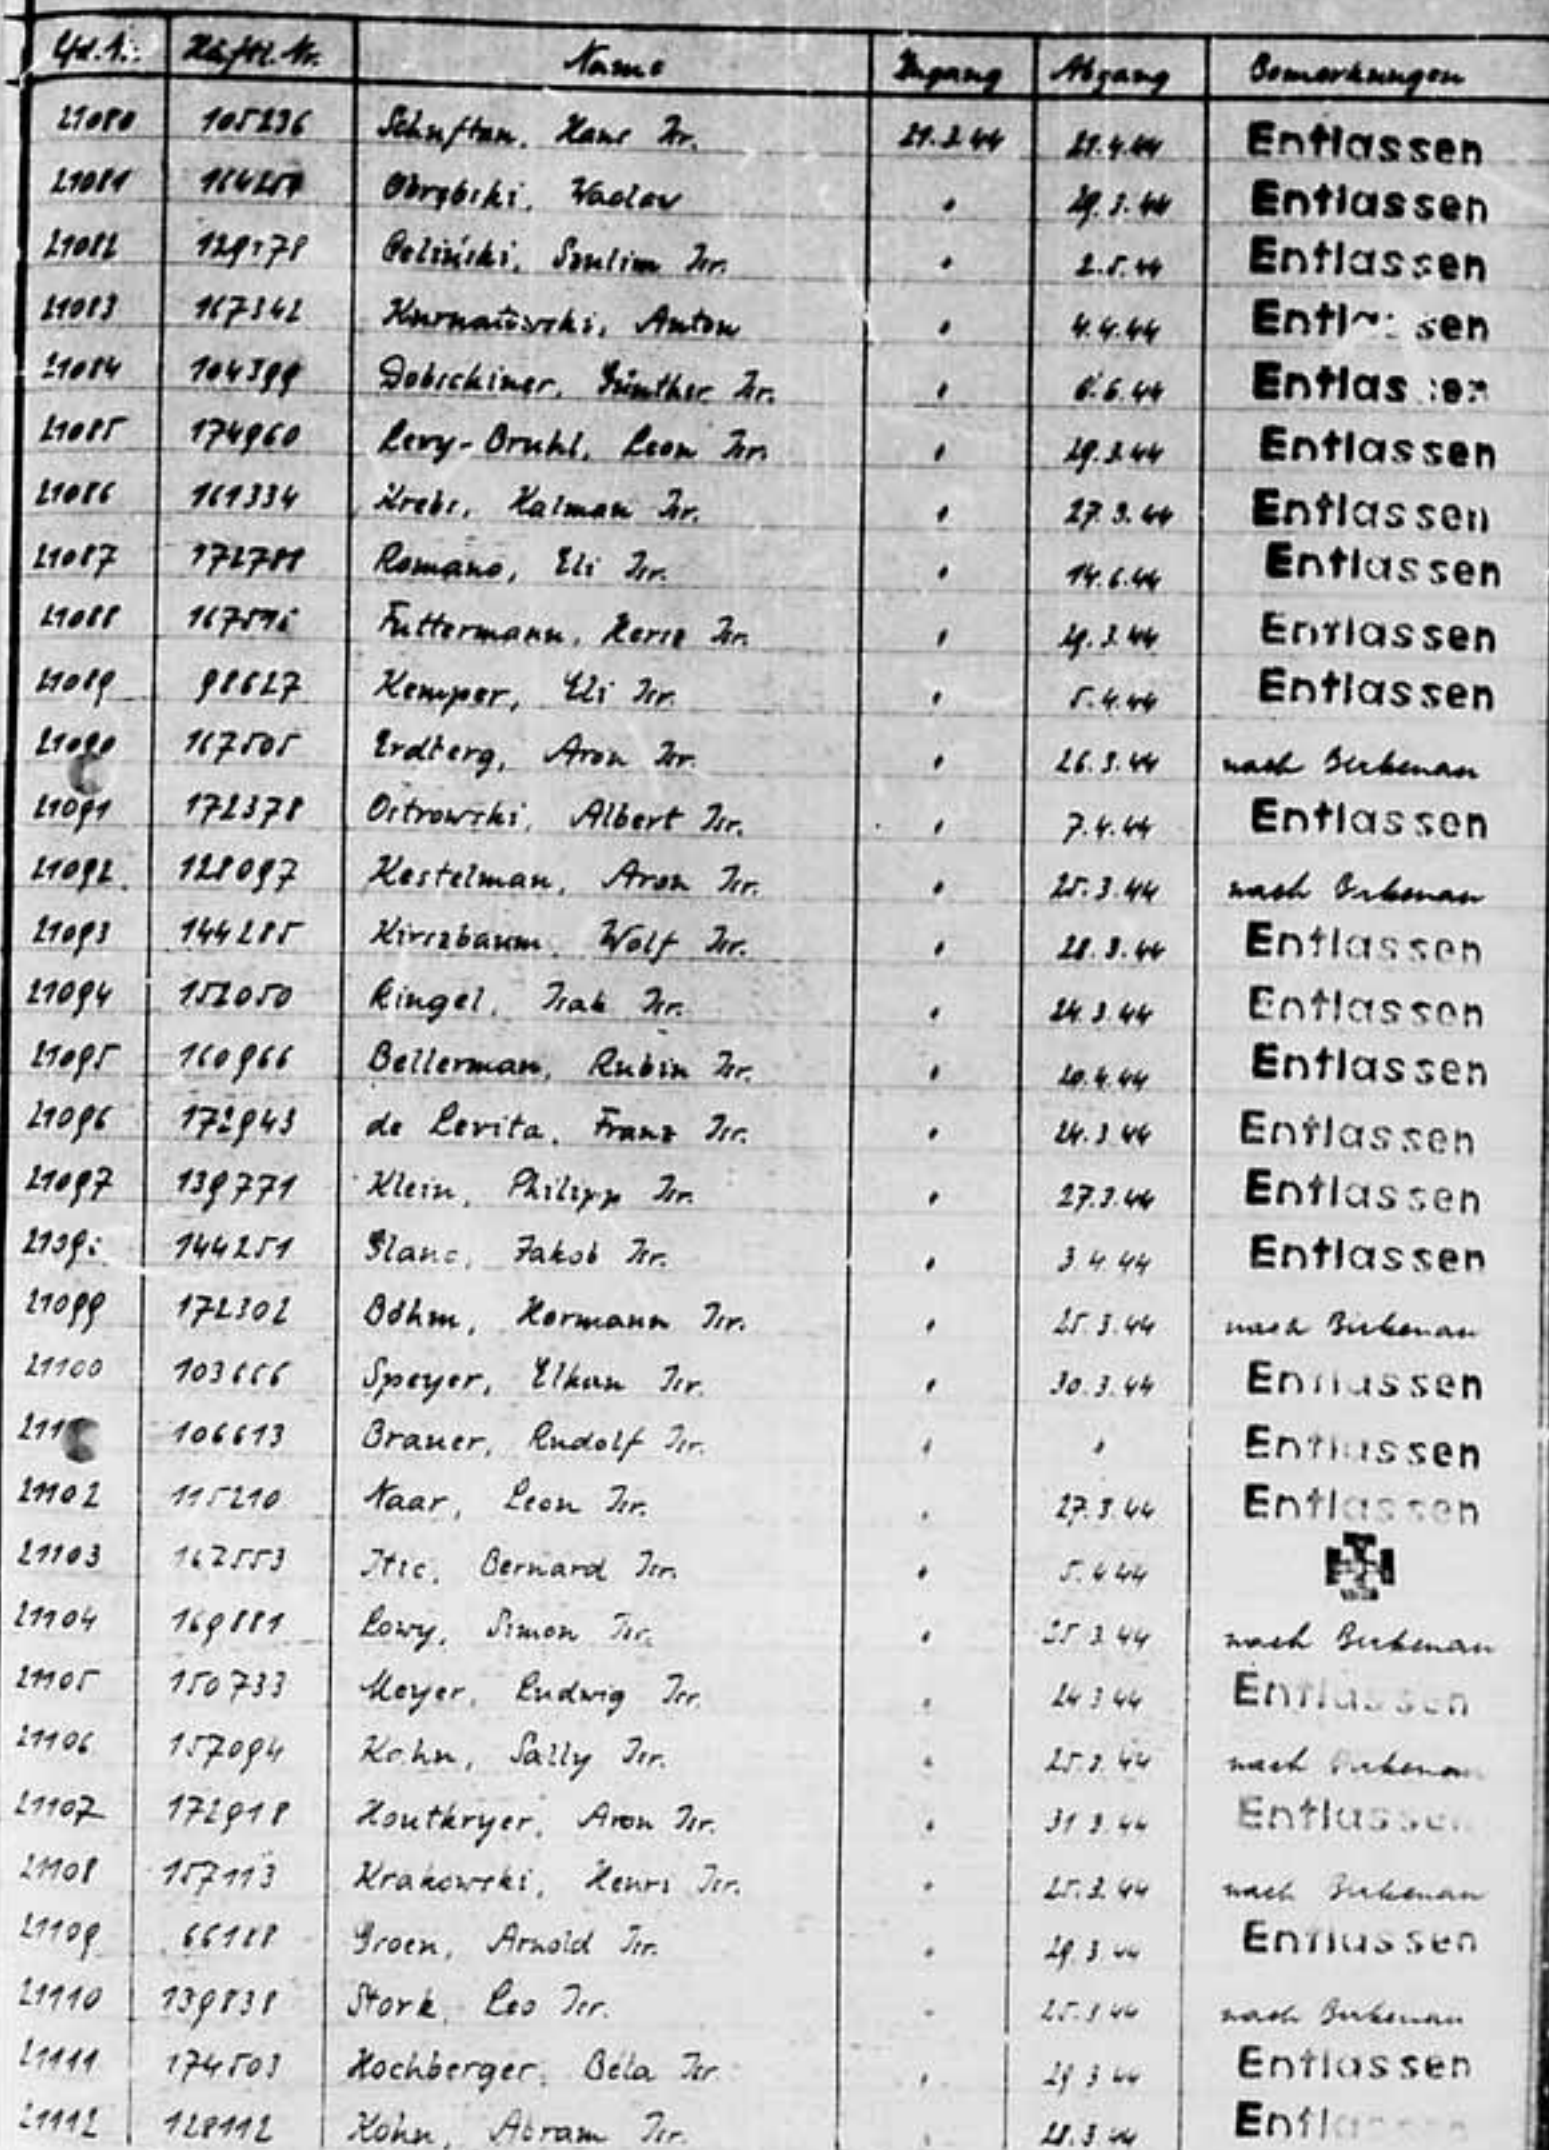 Lfd.Nr. Häftl.Nr. Name Zugang Abgang Bemerkungen
21080 105236 Schuftan, Hans Isr. 21.3.44 21.4.44 Entlassen
21081 Obrębski, Waclaw " 29.3.44 Entlassen
21082 Szulim Isr. " 2.5.44 Entlassen
21083 167342 Anton " 4.4.44 Entlassen
21084 104399 Dobschiner, Günther Isr. " 6.44 Entlassen
21085 174960 Levy-Bruhl, Leon Isr. " 29.3.44 Entlassen
21086 161334 Krebs, Kalman Isr. " 27.3.44 Entlassen
21087 Romano, Eli Isr. " 14.6.44 Entlassen
21088 Futtermann, Hersz Isr. " 29.3.44 Entlassen
21089 98627 Kemper, Eli Isr. " 5.4.44 Entlassen
21090 167505 Erdberg, Aron Isr. " 26.3.44 nach Birkenau
21091 172378 Ostrowski, Albert Isr. " 7.4.44 Entlassen
21092 128097 Kestelman, Aron Isr. " 25.3.44 nach Birkenau
21093 144285 Kirszbaum, Wolf Isr. " 28.3.44 Entlassen
21094 152050 Ringel, Isak Isr. " 24.3.44 Entlassen
21095 160966 Bellerman, Rubin Isr. " 20.4.44 Entlassen
21096 172943 de Levita, Franz Isr. " 24.3.44 Entlassen
21097 139771 Klein, Philipp Isr. " 27.3.44 Entlassen
144251 Glanc, Jakob Isr. " 3.4.44 Entlassen
21099 172302 Böhm, Hermann Isr. " 25.3.44 nach Birkenau
21100 103666 Speyer, Elkan Isr. " 30.3.44 Entlassen
106613 Brauer, Rudolf Isr. " " Entlassen
21102 115210 Naar, Leon Isr. " 27.3.44 Entlassen
21103 162553 Itic, Bernard Isr. " 5.4.44
21104 169881 Lowy, Simon Isr. " 25.3.44 nach Birkenau
21105 150733 Meyer, Ludwig Isr. " 24.3.44 Entlassen
21106 157094 Kohn, Sally Isr. " 25.3.44 nach Birkenau
21107 172918 Houtkryer, Aron Isr. " 31.3.44 Entlassen
21108 157113 Krakowski, Henri Isr. " 25.3.44 nach Birkenau
21109 66188 Groen, Arnold Isr. " 29.3.44 Entlassen
21110 139838 Stork, Leo Isr. " 25.3.44 nach Birkenau
21111 174503 Hochberger, Béla Isr. " 29.3.44 Entlassen
21112 128112 Kohn, Abram Isr. " 28.3.44 Entlassen